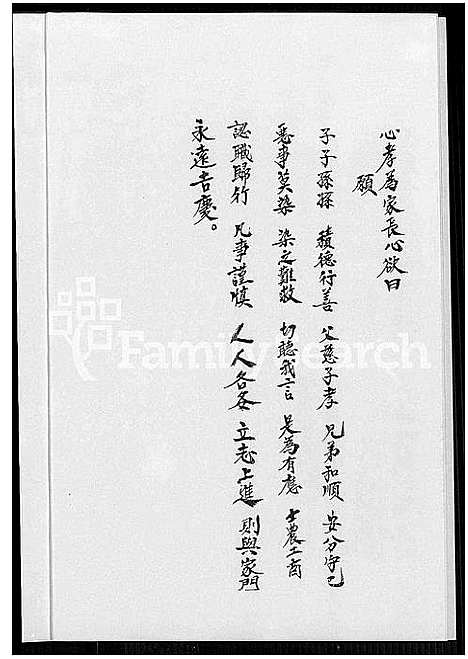 心孝為家長心欲曰
願
子子孫孫 積德行善 父慈子孝 兄弟和順 安分守己
惡事莫染 染之難救 切聽我言 是為有應 士農工商
認職歸行 凡事謹慎 人人各各 立志上進 則與家門
永遠吉慶。
FamilySearch